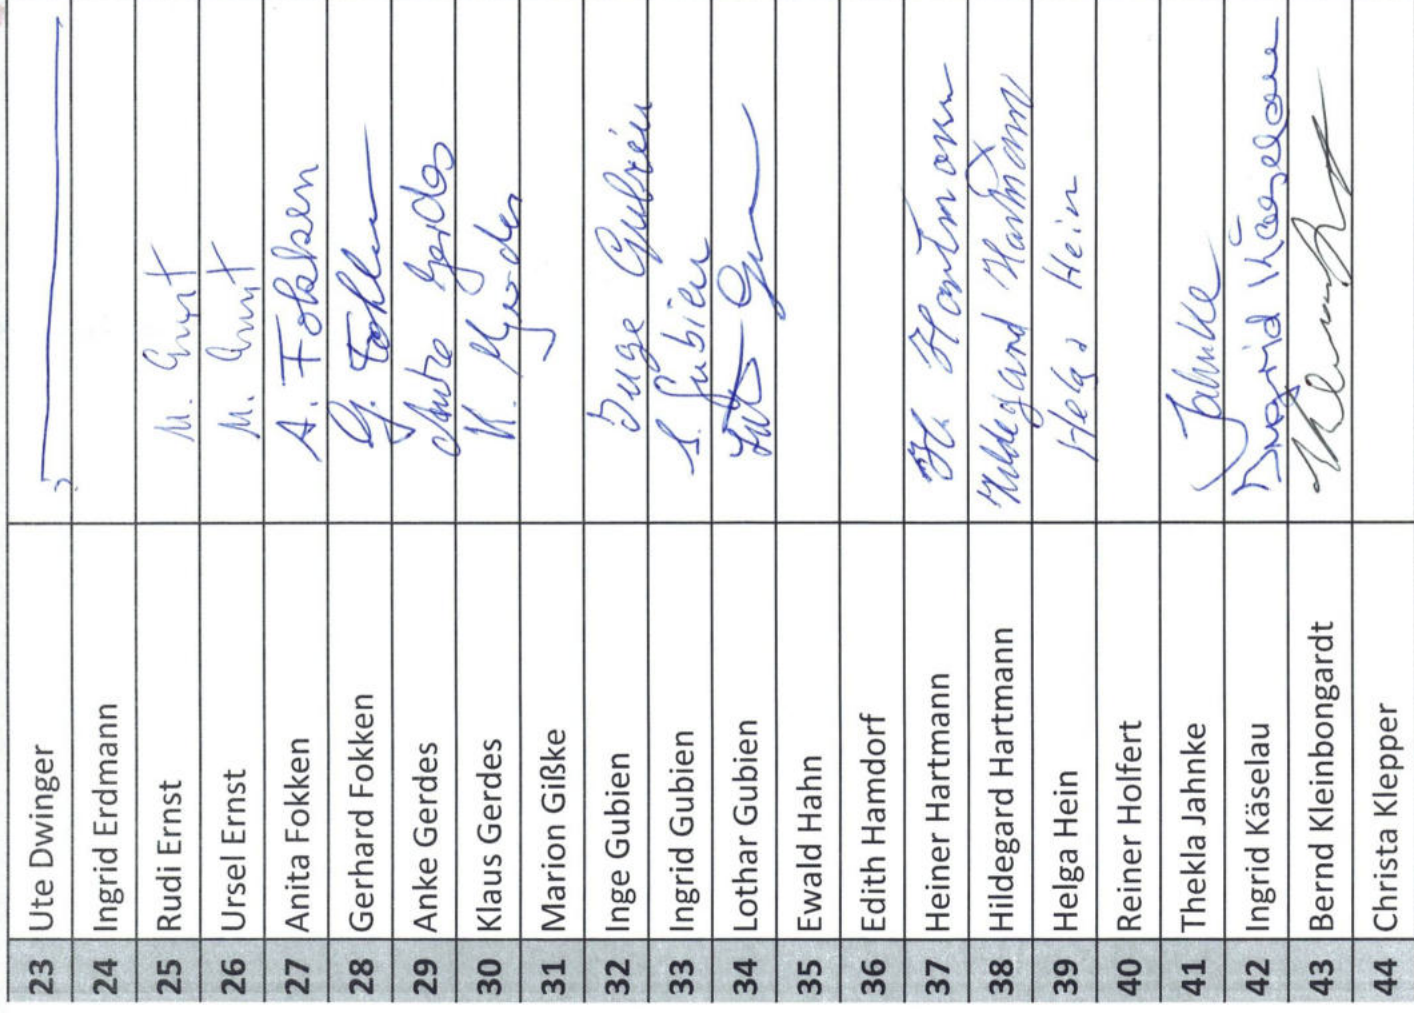 23 Ute Dwinger
24 Ingrid Erdmann
25 Rudi Ernst
26 Ursel Ernst
27 Anita Fokken A. Fokken
28 Gerhard Fokken G. Fokken
29 Anke Gerdes Anke Gerdes
30 Klaus Gerdes K. Gerdes
31 Marion Gißke
32 Inge Gubien Inge Gubien
33 Ingrid Gubien I. Gubien
34 Lothar Gubien
35 Ewald Hahn
36 Edith Hamdorf
37 Heiner Hartmann H. Hartmann
38 Hildegard Hartmann Hildegard Hartmann
39 Helga Hein Helga Hein
40 Reiner Holfert
41 Thekla Jahnke Jahnke
42 Ingrid Käselau Ingrid Käselau
43 Bernd Kleinbongardt
44 Christa Klepper